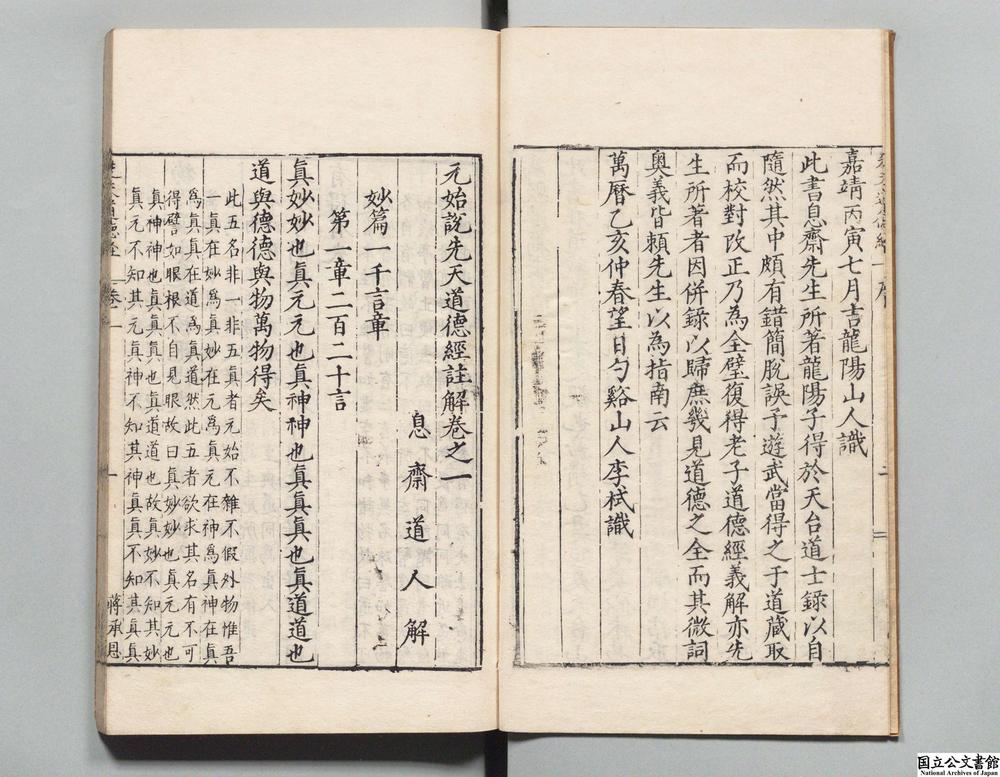 嘉靖丙寅七月吉龍陽山人識
此書息齋先生所著龍陽子得於天台道士錄以自
隨然其中頗有錯簡脫誤予遊武當得之于道藏取
而校對改正乃為全璧復得老子道德經義解亦先
生所著者因併錄以歸庶幾見道德之全而其微詞
奥義皆頼先生以為指南云
萬曆乙亥仲春望日勺谿山人李栻識
元始說先天道德經註解卷之一
息齋道人解
妙篇一千言章
第一章二百二十言
眞妙妙也眞元元也眞神神也眞眞眞也眞道道也
道與德德與物萬物得矣
此五名非一非五眞者元始不雜不假外物惟吾
一眞在妙爲眞妙在元爲眞元在神爲眞神在眞
爲眞眞在道爲眞道然此五者欲求其名有不可
得譬如眼根不自見眼故曰眞妙妙也眞元元也
眞神神也眞眞眞也眞道道也故眞妙不知其妙
眞元不知其元眞神不知其神眞眞不知其眞眞
卷一
蔣承恩
国立公文書館
National Archives of Japan